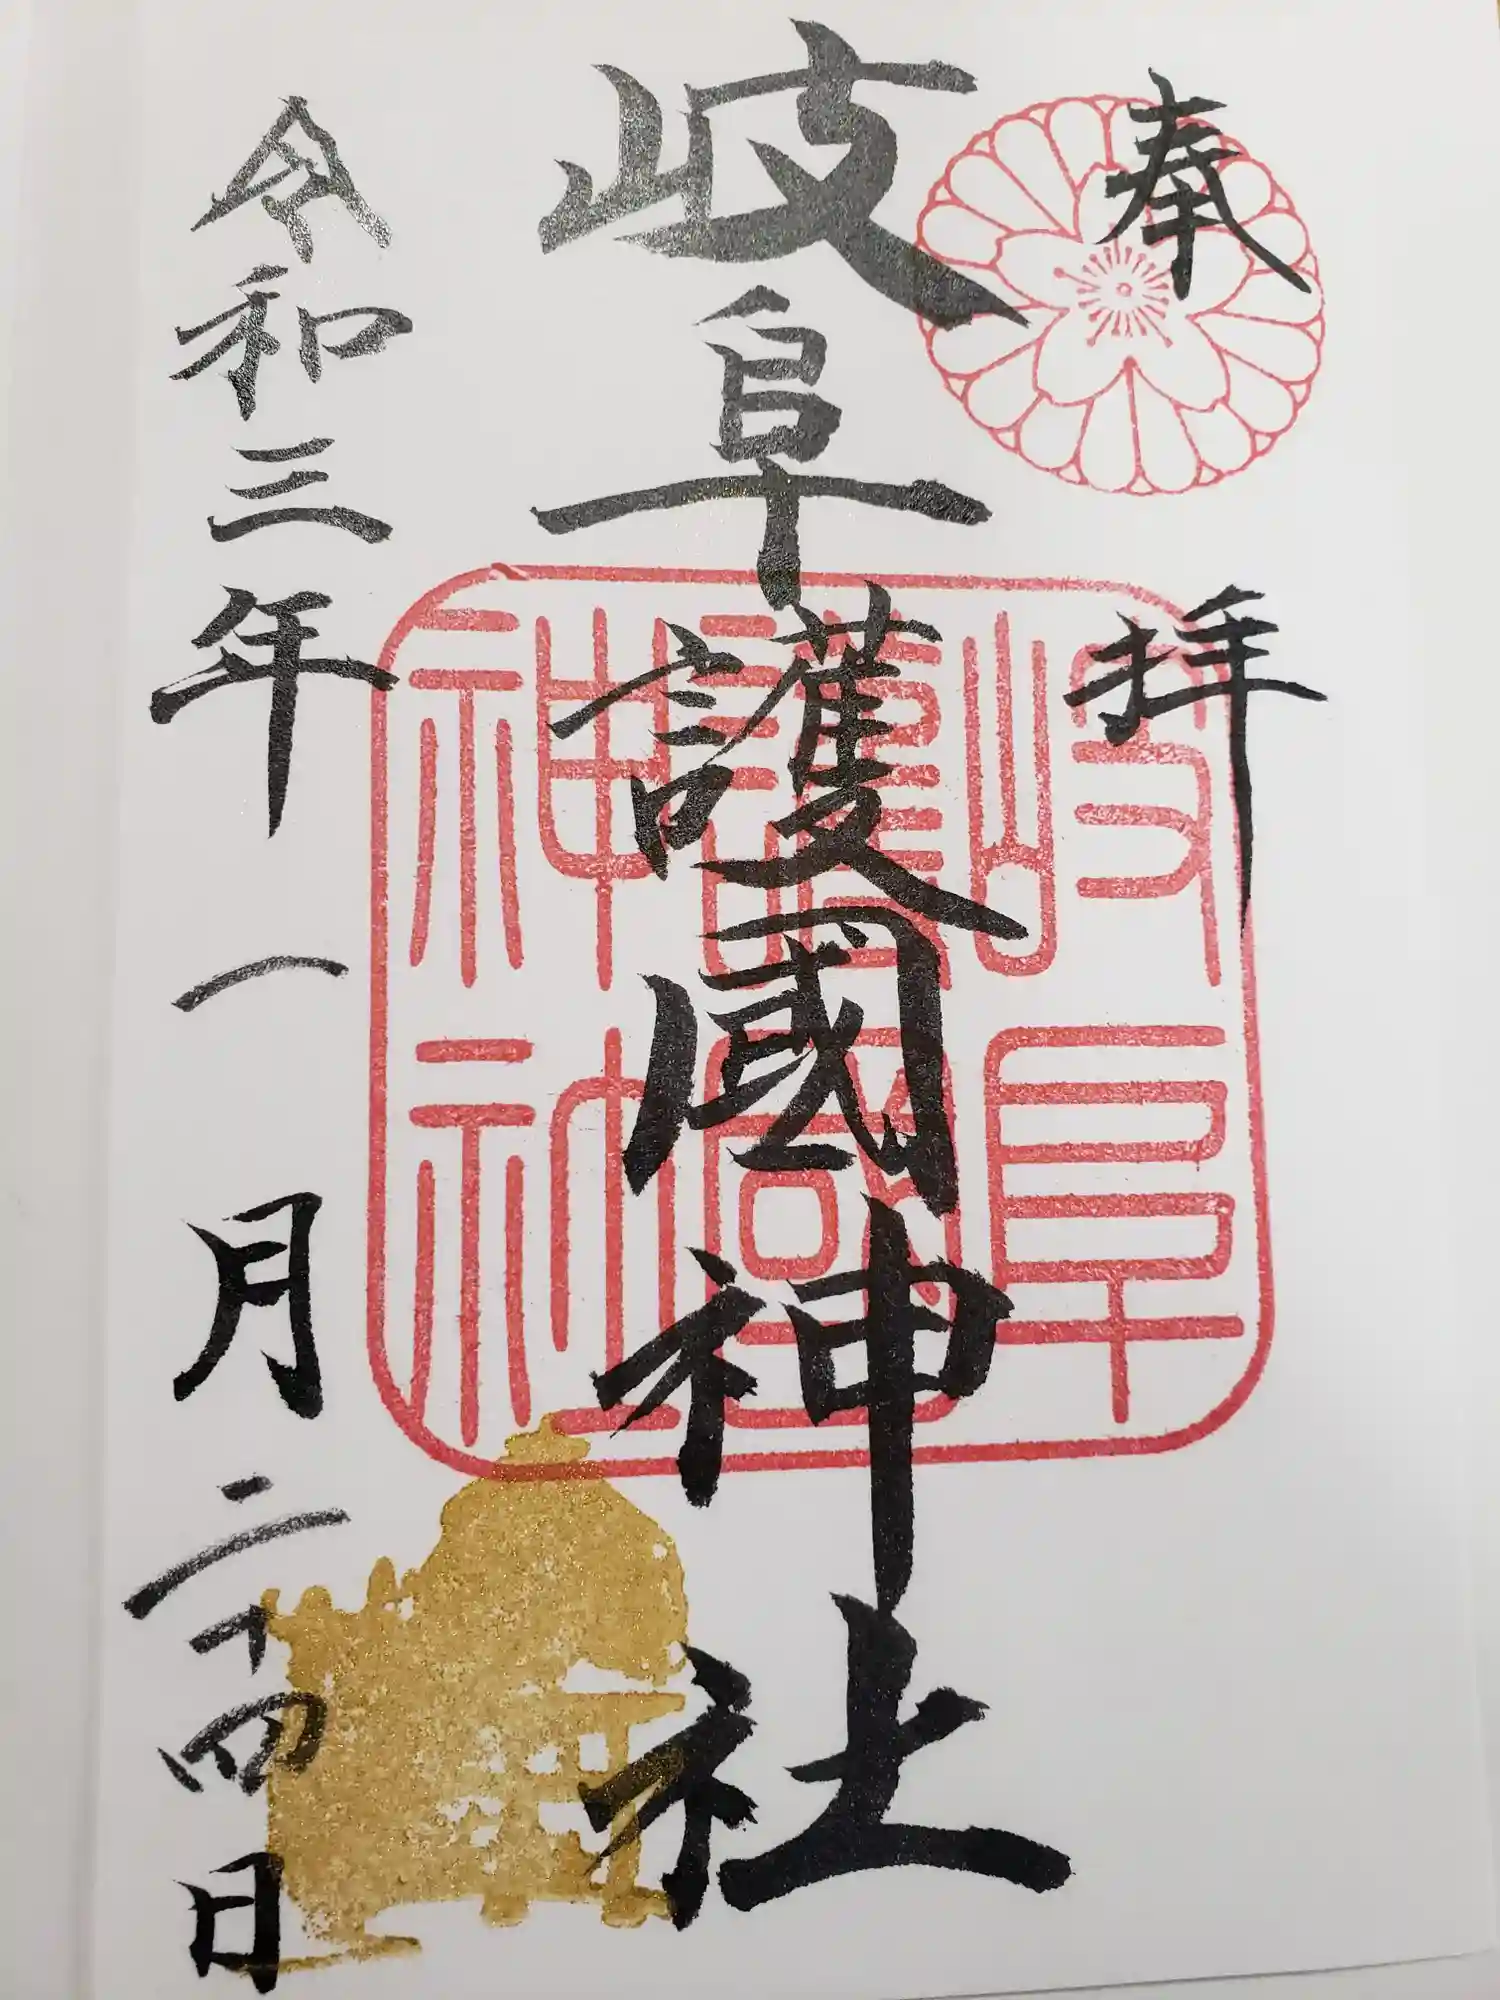 奉拝
岐阜護國神社
岐阜
護國
神社
令和三年一月二十四日